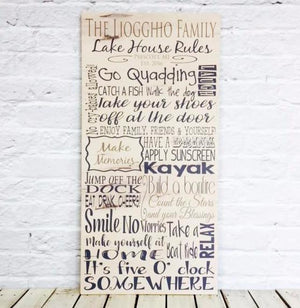 The Hogghho Family
Lake House Rules
Est. 2016
Go Quadding
Catch a fish Walk the dog
Take your shoes
off at the door
Enjoy Family, Friends & Yourself
Make
Memories
Have a
Apply Sunscreen
Kayak
Jump off the
Dock
Build a bonfire
Eat, Drink, Cheers!
Count the Stars
and your Blessings
Smile No
Worries
Take a
Boat Ride
RELAX
Make yourself at
Home
It's five O' clock
SOMEWHERE